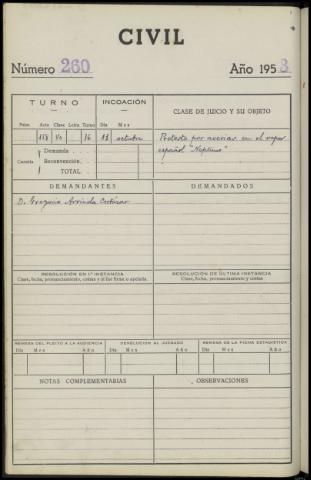 CIVIL
Número 260 Año 1958
TURNO INCOACIÓN CLASE DE JUICIO Y SU OBJETO
Pets. Acto Clase Letra Turno Día Mes
16 octubre
Protesta por averías en el vapor
español "Neptuno"
Demanda
Cuantía Reconvención
TOTAL
DEMANDANTES DEMANDADOS
D. Gregorio Arrinda
RESOLUCIÓN EN 1.ª INSTANCIA RESOLUCIÓN DE ÚLTIMA INSTANCIA
Clase, fecha, pronunciamiento, costas y si fue firme o apelada. Clase, fecha, pronunciamiento y costas
REMESA DEL PLEITO A LA AUDIENCIA DEVOLUCIÓN AL JUZGADO REMESA DE LA FICHA ESTADÍSTICA
Día Mes Año Día Mes Año Día Mes Año
NOTAS COMPLEMENTARIAS OBSERVACIONES